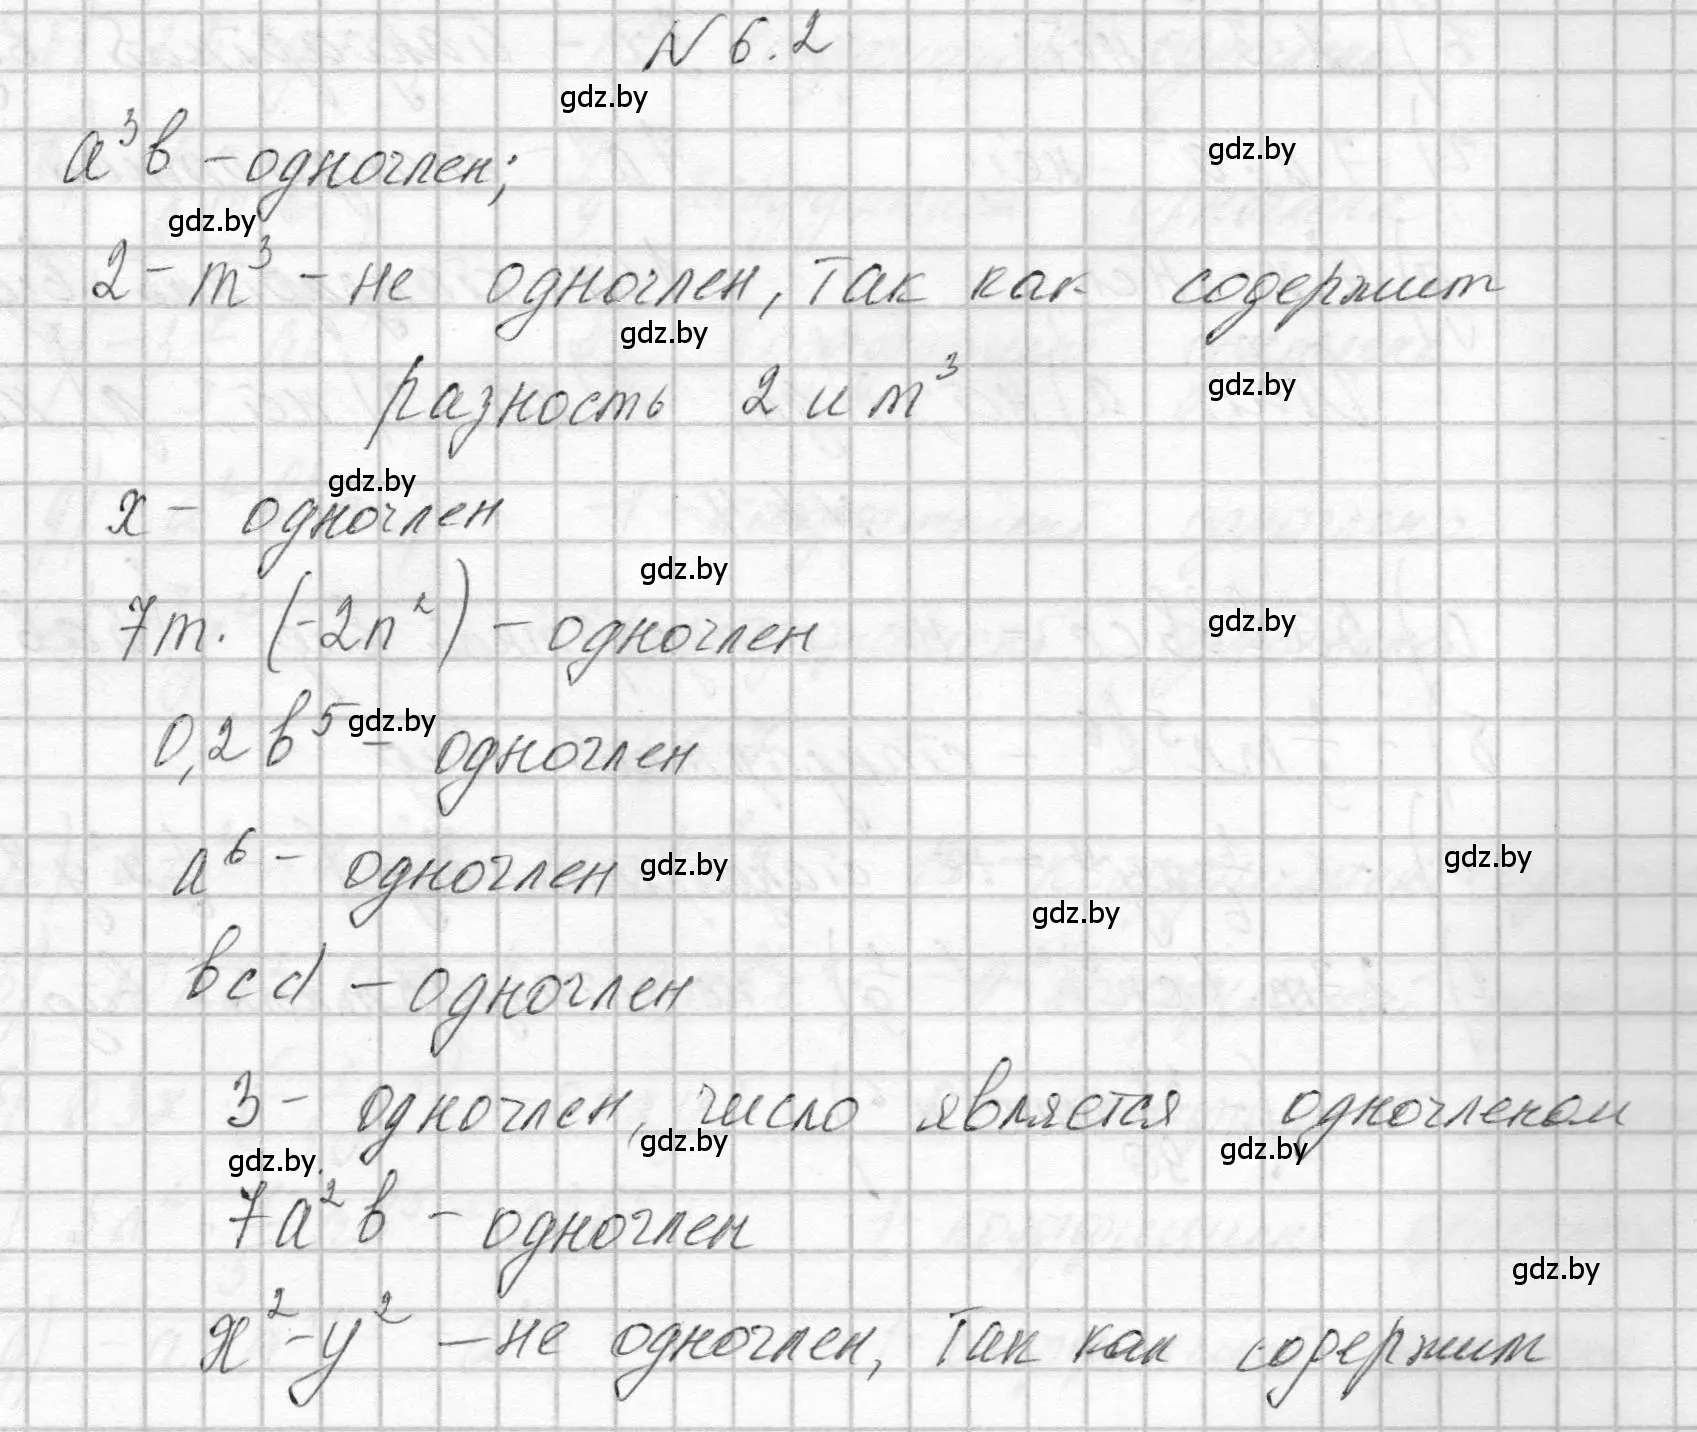 N 6.2
gdz.by
a³b - одночлен;
gdz.by
gdz.by
2 - m³ - не одночлен, так как содержит
gdz.by
разность 2 и m³
gdz.by
gdz.by
x - одночлен
gdz.by
7m · (-2n²) - одночлен
gdz.by
0,2b⁵ - одночлен
gdz.by
a⁶ - одночлен
gdz.by
gdz.by
gdz.by
bcd - одночлен
3 - одночлен, число является одночленом
gdz.by
gdz.by
gdz.by
7a²b - одночлен
gdz.by
x² - y² - не одночлен, так как содержит